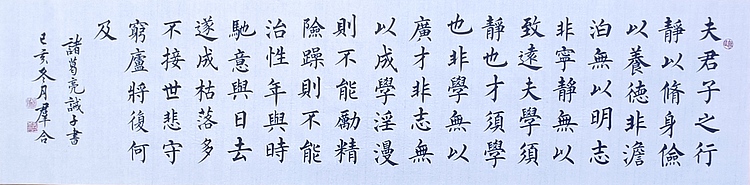 夫君子之行
靜以脩身儉
以養德非澹
泊無以明志
非寧靜無以
致遠夫學須
靜也才須學
也非學無以
廣才非志無
以成學淫漫
則不能勵精
險躁則不能
治性年與時
馳意與日去
遂成枯落多
不接世悲守
窮廬將復何
及
諸葛亮誡子書
己亥冬月羣合